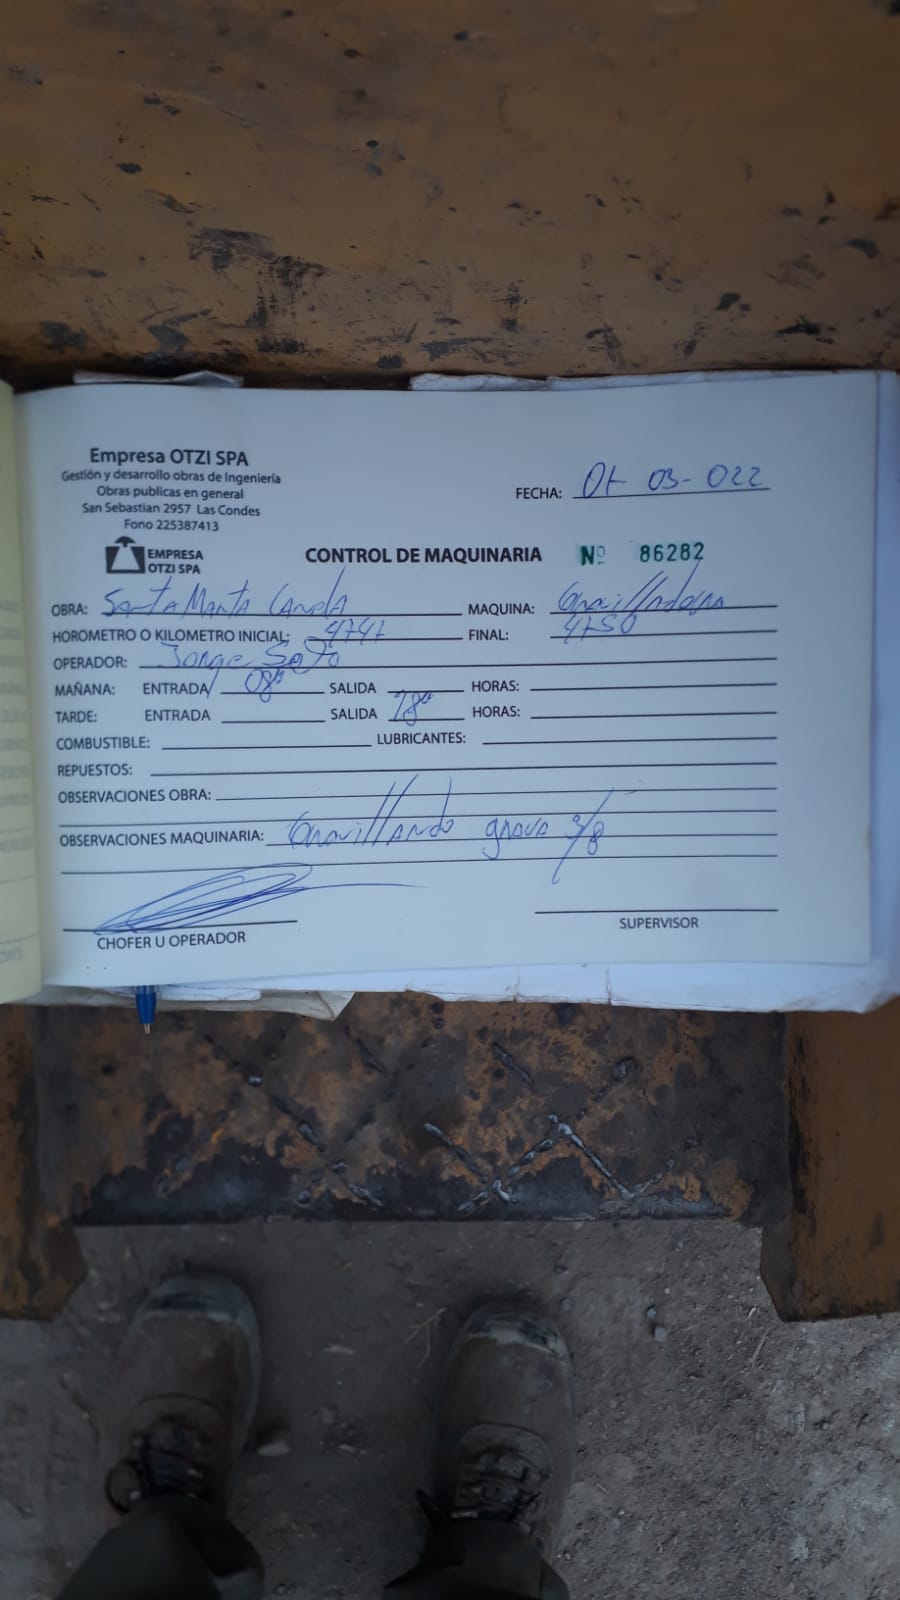 Empresa OTZI SPA
Gestión y desarrollo obras de Ingeniería
Obras publicas en general
San Sebastian 2957 Las Condes
Fono 225387413
FECHA: 01-03-022
EMPRESA
OTZI SPA
CONTROL DE MAQUINARIA Nº 86282
OBRA: Santa Marta MAQUINA: Gravilladora
HOROMETRO O KILOMETRO INICIAL: 4747 FINAL: 4750
OPERADOR: Jorge Soto
MAÑANA: ENTRADA 08 SALIDA HORAS:
TARDE: ENTRADA SALIDA 18 HORAS:
COMBUSTIBLE: LUBRICANTES:
REPUESTOS:
OBSERVACIONES OBRA:
OBSERVACIONES MAQUINARIA: Gravillando grava 3/8
CHOFER U OPERADOR
SUPERVISOR